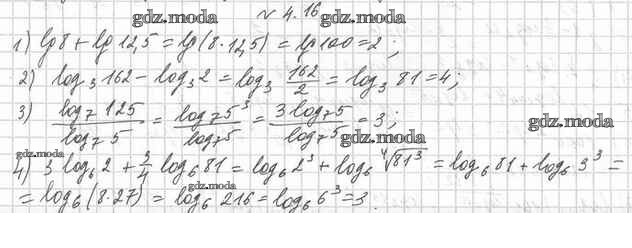 gdz.moda
№ 4.16
gdz.moda
1) lg 8 + lg 12,5 = lg (8 · 12,5) = lg 100 = 2;
2) log₃ 162 − log₃ 2 = log₃ 162/2 = log₃ 81 = 4;
3) log₇ 125 / log₇ 5 = log₇ 5³ / log₇ 5 = 3 log₇ 5 / log₇ 5 = 3;
gdz.moda
gdz.moda
gdz.moda
4) 3 log₆ 2 + 3/4 log₆ 81 = log₆ 2³ + log₆ ⁴√81³ = log₆ 81 + log₆ 3³ =
gdz.moda
= log₆ (8 · 27) = log₆ 216 = log₆ 6³ = 3.